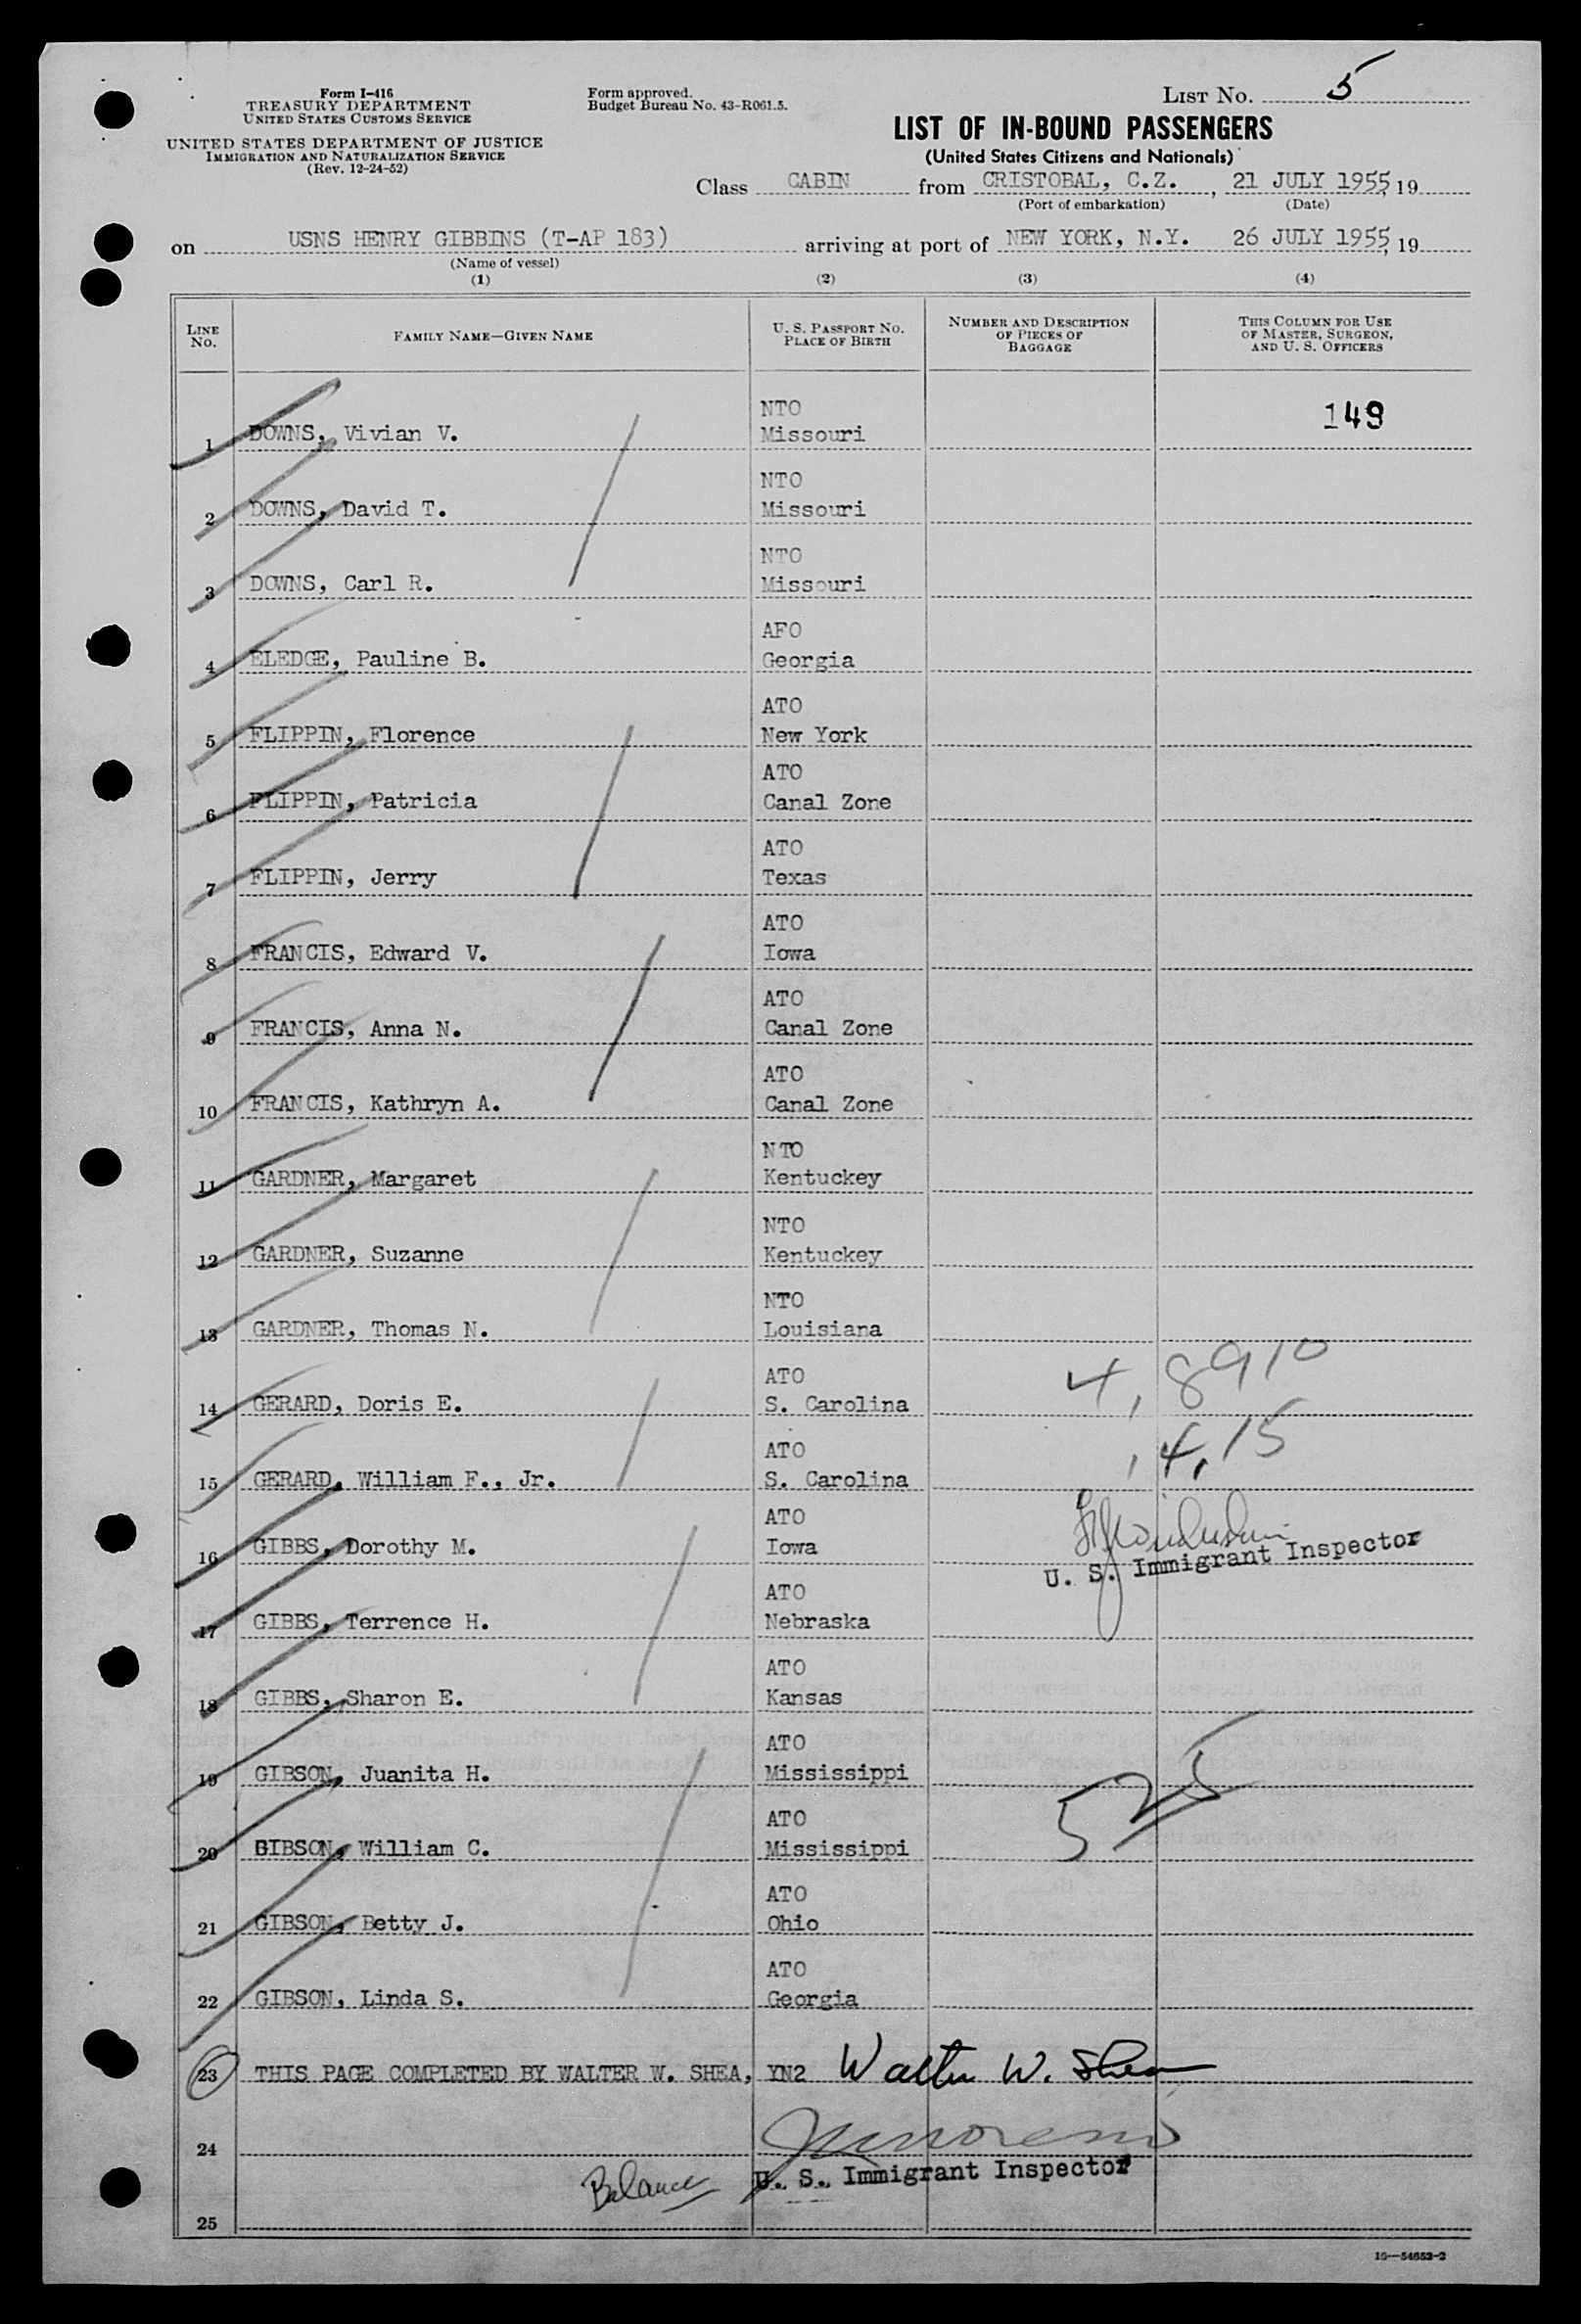 Form I-416
TREASURY DEPARTMENT
UNITED STATES CUSTOMS SERVICE
UNITED STATES DEPARTMENT OF JUSTICE
IMMIGRATION AND NATURALIZATION SERVICE
(Rev. 12-24-52)
Form approved.
Budget Bureau No. 43-R061.5.
LIST NO. 5
LIST OF IN-BOUND PASSENGERS
(United States Citizens and Nationals)
Class CABIN from CRISTOBAL, C.Z. , 21 JULY 1955, 19
(Port of embarkation) (Date)
on USNS HENRY GIBBINS (T-AP 183) arriving at port of NEW YORK, N.Y. 26 JULY 1955, 19
(Name of vessel)
(1) (2) (3) (4)
LINE NO.
FAMILY NAME—GIVEN NAME
U. S. PASSPORT NO.
PLACE OF BIRTH
NUMBER AND DESCRIPTION
OF PIECES OF
BAGGAGE
THIS COLUMN FOR USE
OF MASTER, SURGEON,
AND U. S. OFFICERS
NTO 149
1 DOWNS, Vivian V. Missouri
NTO
2 DOWNS, David T. Missouri
NTO
3 DOWNS, Carl R. Missouri
AFO
4 ELEDGE, Pauline B. Georgia
ATO
5 FLIPPIN, Florence New York
ATO
6 FLIPPIN, Patricia Canal Zone
ATO
7 FLIPPIN, Jerry Texas
ATO
8 FRANCIS, Edward V. Iowa
ATO
9 FRANCIS, Anna N. Canal Zone
ATO
10 FRANCIS, Kathryn A. Canal Zone
NTO
11 GARDNER, Margaret Kentucky
NTO
12 GARDNER, Suzanne Kentucky
NTO
13 GARDNER, Thomas N. Louisiana
ATO 4, 8910
14 GERARD, Doris E. S. Carolina
ATO , 4, 15
15 GERARD, William F., Jr. S. Carolina
ATO
16 GIBBS, Dorothy M. Iowa
U. S. Immigrant Inspector
ATO
17 GIBBS, Terrence H. Nebraska
ATO
18 GIBBS, Sharon E. Kansas
ATO
19 GIBSON, Juanita H. Mississippi
ATO
20 GIBSON, William C. Mississippi
ATO
21 GIBSON, Betty J. Ohio
ATO
22 GIBSON, Linda S. Georgia
23 THIS PAGE COMPLETED BY WALTER W. SHEA, YN2 Walter W. Shea
24
Balance U. S. Immigrant Inspector
25
16—54652-2